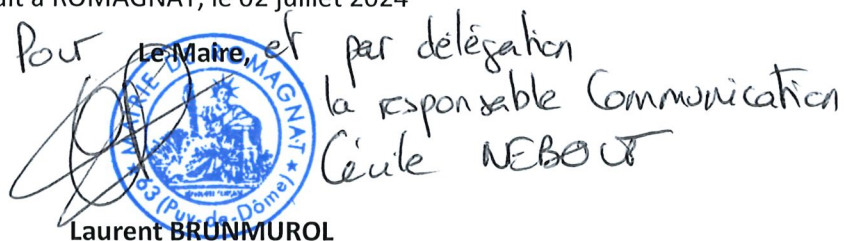 ait à ROMAGNAT, le 02 juillet 2024
Pour Le Maire, et par délégation
la responsable Communication
Cécile NEBOUT
MAIRIE DE ROMAGNAT
★ 63 (Puy-de-Dôme) ★
Laurent BRUNMUROL